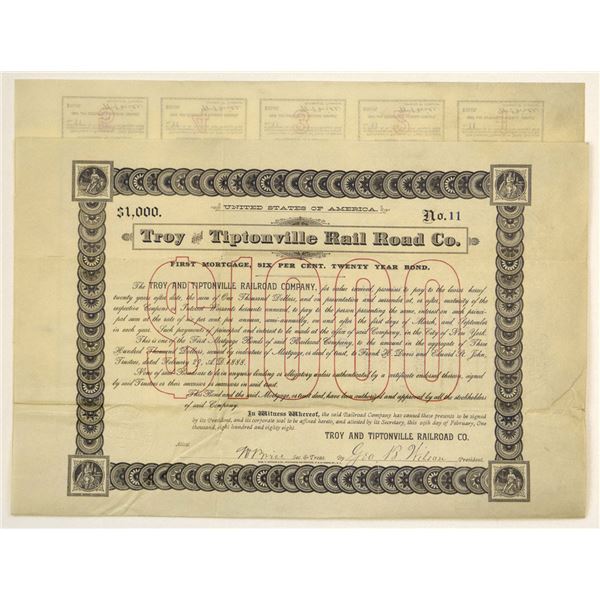 UNITED STATES OF AMERICA.
$1,000.
No. 11
Troy and Tiptonville Rail Road Co.
FIRST MORTGAGE, SIX PER CENT. TWENTY YEAR BOND.
$1000
The TROY AND TIPTONVILLE RAILROAD COMPANY, for value received, promises to pay to the bearer hereof
twenty years after date, the sum of One Thousand Dollars, and on presentation and surrender at, or after, maturity of the
respective Coupons or Interest Warrants hereunto annexed, to pay to the person presenting the same, interest on such princi-
pal sum at the rate of six per cent. per annum, semi-annually, on and after the first days of March, and September
in each year. Such payments of principal and interest to be made at the office of said Company, in the City of New York.
This is one of the First Mortgage Bonds of said Railroad Company, to the amount in the aggregate of Three
Hundred Thousand Dollars, secured by indenture of Mortgage, or deed of trust, to Frank H. Davis and Edward St. John,
Trustees, dated February 27, A.D. 1888.
None of said Bonds are to be in anywise binding or obligatory unless authenticated by a certificate endorsed thereon, signed
by said Trustees or their successor or successors in said trust.
This Bond and the said Mortgage, or trust deed, have been authorized and approved by all the stockholders
of said Company.
In Witness Whereof, the said Railroad Company has caused these presents to be signed
by its President, and its corporate seal to be affixed hereto, and attested by its Secretary, this 29th day of February, One
thousand, eight hundred and eighty eight.
TROY AND TIPTONVILLE RAILROAD CO.
Attest
Sec. & Treas. By Geo B Wilson President.